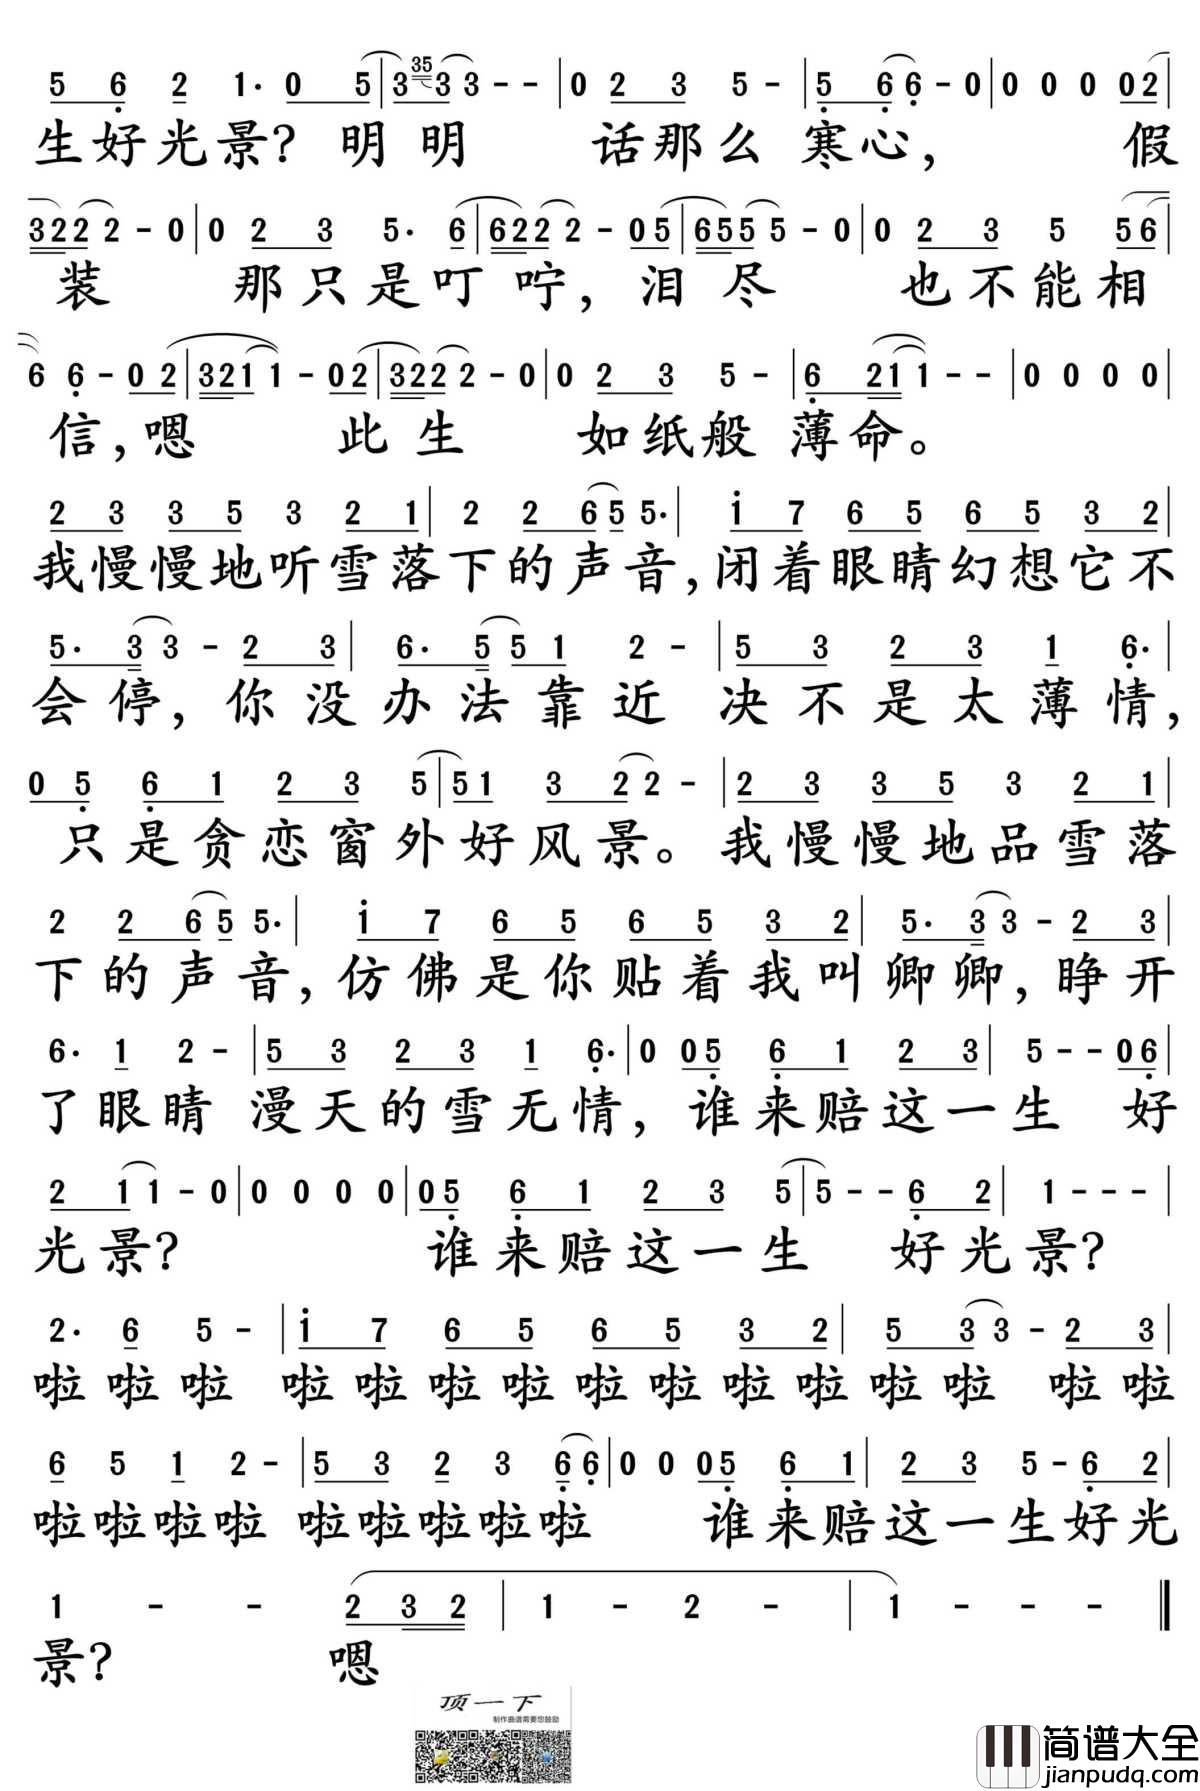 5 6 2 1· 0 5|3 35 3 3 - -|0 2 3 5 -|5 6 6 - 0|0 0 0 0 2|
生好光景?明明 话那么寒心, 假
3 2 2 2 - 0|0 2 3 5· 6|6 2 2 2 - 0 5|6 5 5 5 - 0|0 2 3 5 5 6|
装 那只是叮咛,泪尽 也不能相
6 6 - 0 2|3 2 1 1 - 0 2|3 2 2 2 - 0|0 2 3 5 -|6 2 1 1 - -|0 0 0 0|
信,嗯 此生 如纸般薄命。
2 3 3 5 3 2 1|2 2 6 5 5·|i 7 6 5 6 5 3 2|
我慢慢地听雪落下的声音,闭着眼睛幻想它不
5· 3 3 - 2 3|6· 5 5 1 2 -|5 3 2 3 1 6·|
会停,你没办法靠近 决不是太薄情,
0 5 6 1 2 3 5|5 1 3 2 2 -|2 3 3 5 3 2 1|
只是贪恋窗外好风景。我慢慢地品雪落
2 2 6 5 5·|i 7 6 5 6 5 3 2|5· 3 3 - 2 3|
下的声音,仿佛是你贴着我叫卿卿,睁开
6· 1 2 -|5 3 2 3 1 6·|0 0 5 6 1 2 3|5 - - 0 6|
了眼睛 漫天的雪无情,谁来赔这一生 好
2 1 1 - 0|0 0 0 0|0 5 6 1 2 3 5|5 - - 6 2|1 - - -|
光景? 谁来赔这一生 好光景?
2· 6 5 -|i 7 6 5 6 5 3 2|5 3 3 - 2 3|
啦啦啦 啦啦啦啦啦啦啦啦啦啦 啦啦
6 5 1 2 -|5 3 2 3 6 6|0 0 0 5 6 1|2 3 5 - 6 2|
啦啦啦啦 啦啦啦啦啦 谁来赔这一生好光
1 - - 2 3 2|1 - 2 -|1 - - -‖
景? 嗯
顶一下
制作曲谱需要您鼓励
简谱大全
jianpudq.com